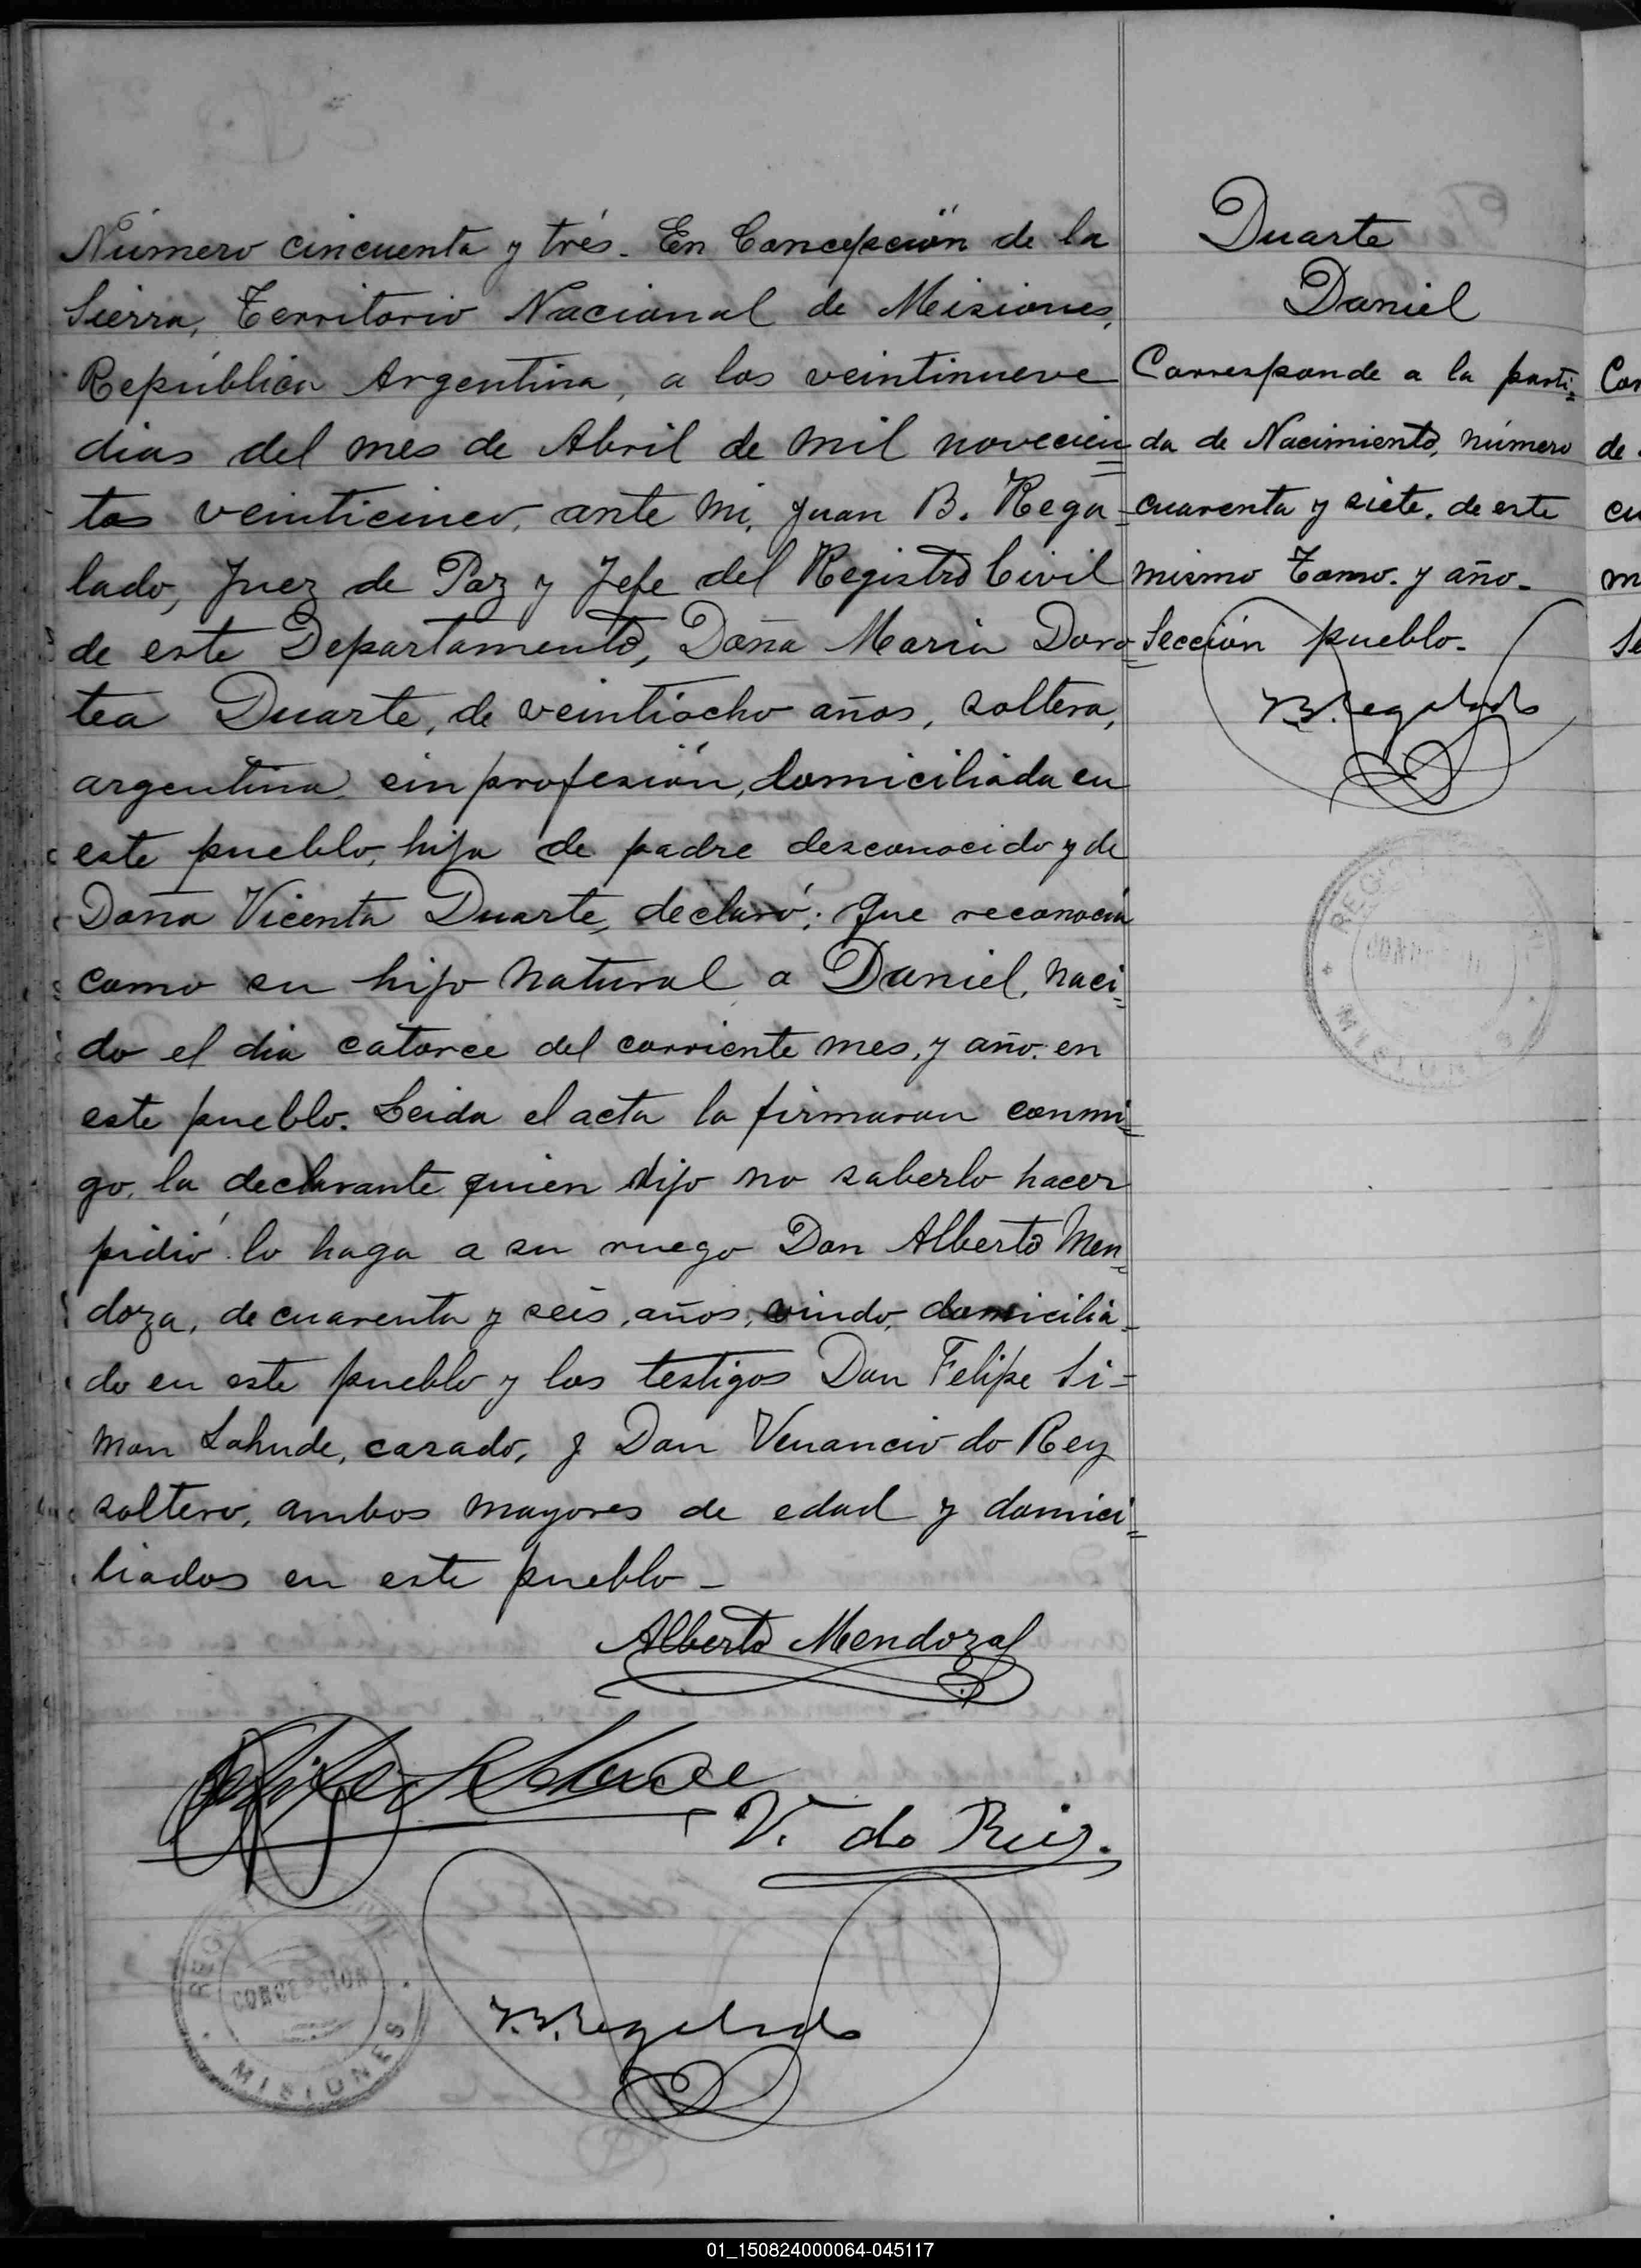 Número cincuenta y trés. En Concepción de la
Sierra, Territorio Nacional de Misiones,
República Argentina, a los veintinueve
dias del mes de Abril de mil novecien=
tos veinticinco, ante mi, Juan B. Rega=
lado, Juez de Paz y Jefe del Registro Civil
de este Departamento, Doña Maria Doro=
tea Duarte, de veintiocho años, soltera,
argentina, sin profesión, domiciliada en
este pueblo, hija de padre desconocido y de
Doña Vicenta Duarte, declaró: Que reconocia
como su hijo natural a Daniel, naci=
do el dia catorce del corriente mes, y año. en
este pueblo. Leida el acta la firmaron conmi=
go, la declarante quien dijo no saberlo hacer
pidió lo haga a su ruego Don Alberto Men=
doza, de cuarenta y seis, años, viudo, domicilia=
do en este pueblo y los testigos Don Felipe Si=
mon Lahude, casado, y Don Venancio do Rey
soltero, ambos mayores de edad y domici=
liados en este pueblo-
Alberto Mendoza
V. do Reis.
J.B. Regalado
REGISTRO CIVIL
CONCEPCION
MISIONES
Duarte
Daniel
Corresponde a la parti=
da de Nacimiento, número
cuarenta y siete, de este
mismo Tomo. y año-
Sección pueblo-
J.B. Regalado
MISIONES
01_150824000064-045117